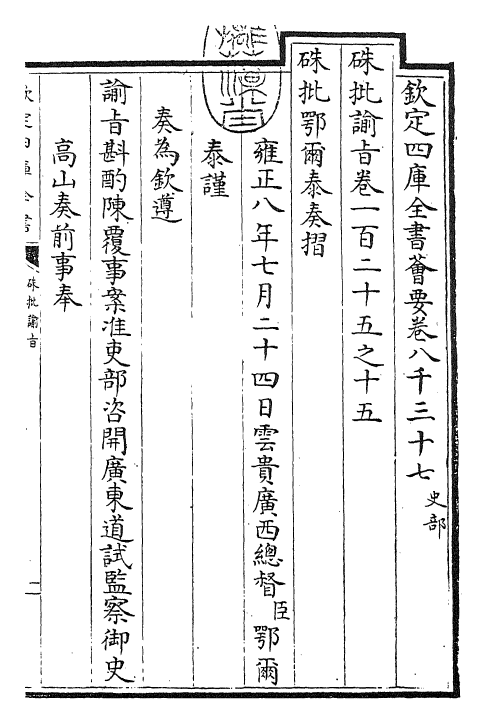 欽定四庫全書薈要卷八千三十七 史部
硃批諭旨卷一百二十五之十五
硃批鄂爾泰奏摺
雍正八年七月二十四日雲貴廣西總督臣鄂爾
泰謹
奏為欽遵
諭旨斟酌陳覆事案准吏部咨開廣東道試監察御史
高山奏前事奉
欽定四庫全書
硃批諭旨